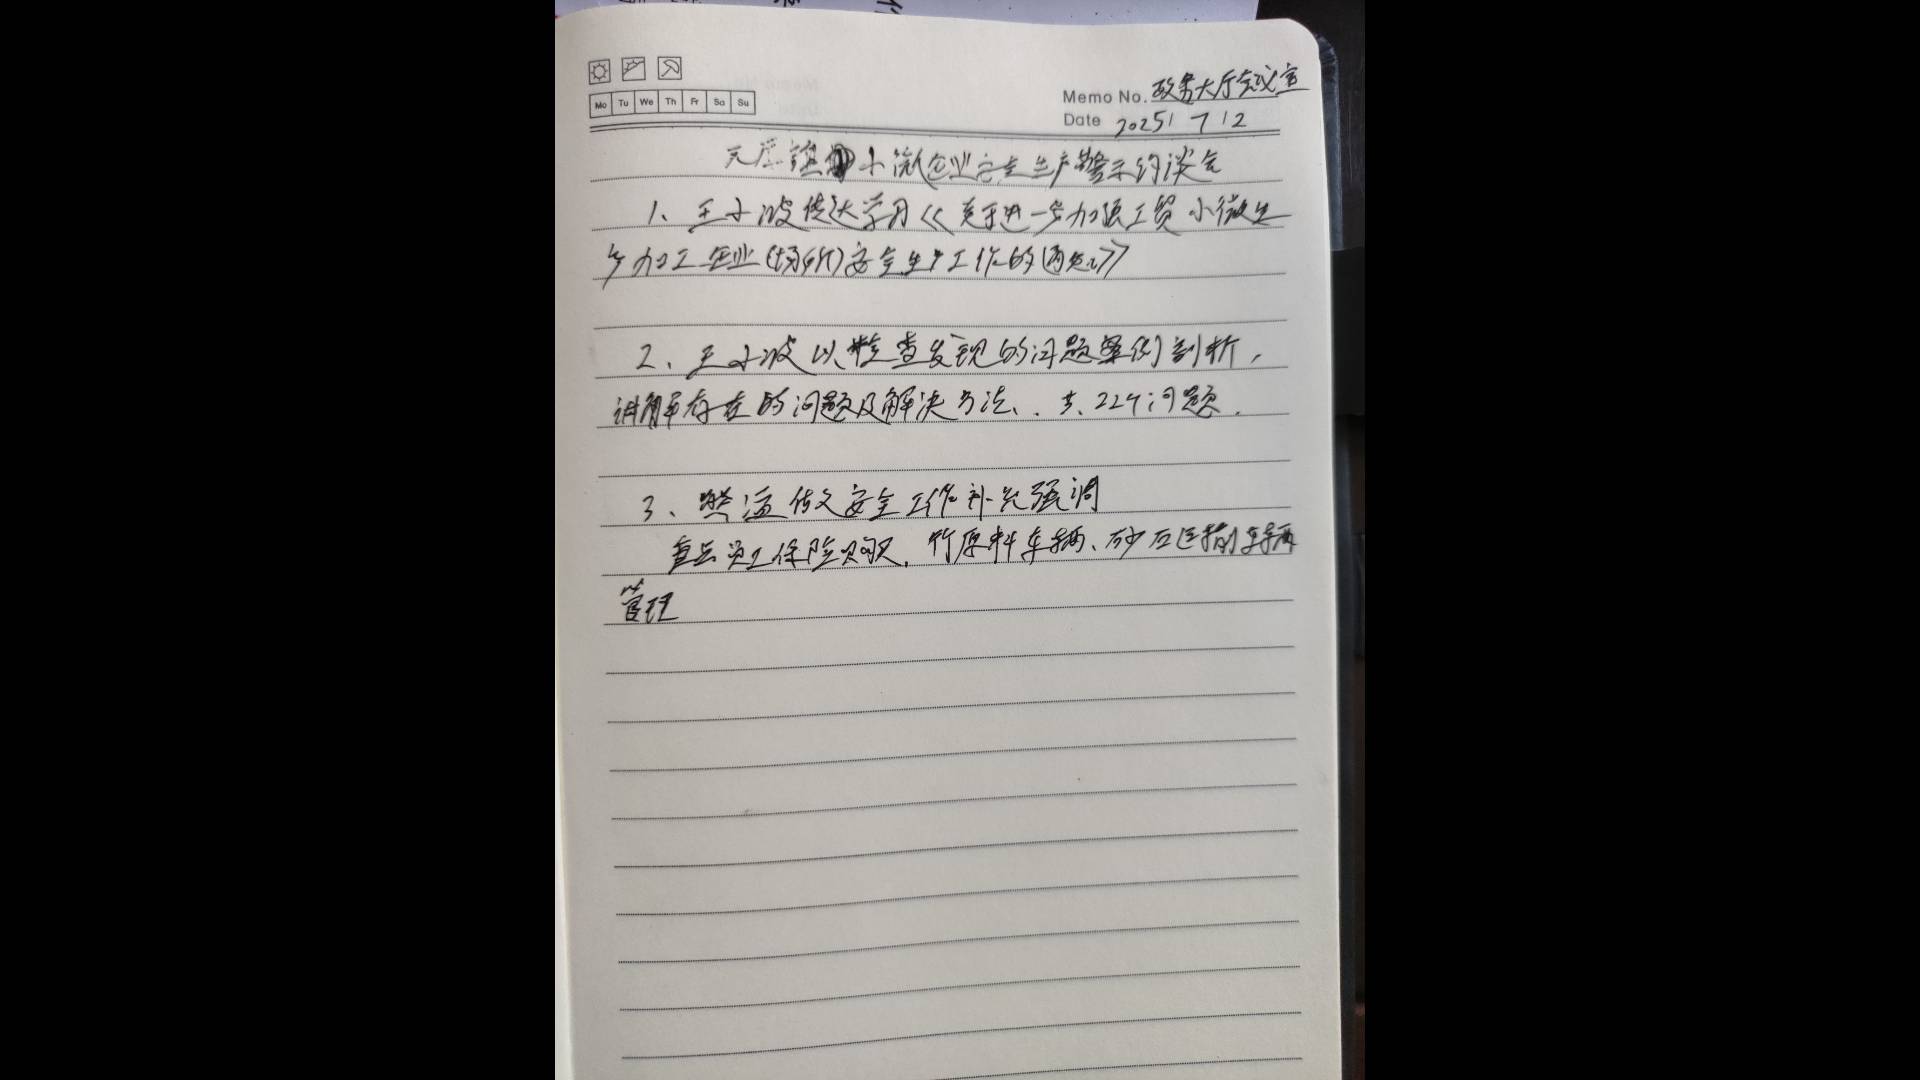 Mo Tu We Th Fr Sa Su
Memo No. 政务大厅会议室
Date 2025/ 7 / 2
小微企业安全生产警示约谈会
1、王小波传达学习《关于进一步加强工贸小微生
产加工企业(场所)安全生产工作的通知》
2、王小波以检查发现的问题案例剖析,
讲解存在的问题及解决方法、. 共、22个问题.
3、 做安全工作补充强调
员工保险购买,竹原料车辆、砂石运输车辆
管理